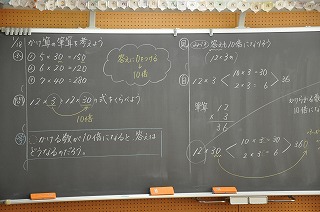 1/18 かけ算の筆算を考えよう
① 5×30=150
② 6×20=120
③ 7×40=280
答えに0をつける
10倍
問 12×3と12×30の式をくらべよう
10倍
かける数が10倍になると、答えは
どうなるのだろう。
答えも10倍になりそう
(12×3)
12×3
10×3=30
2×3=6
36
筆算
12
×3
36
12×30
10×3=30
2×3=6
360
かける数が
10倍に